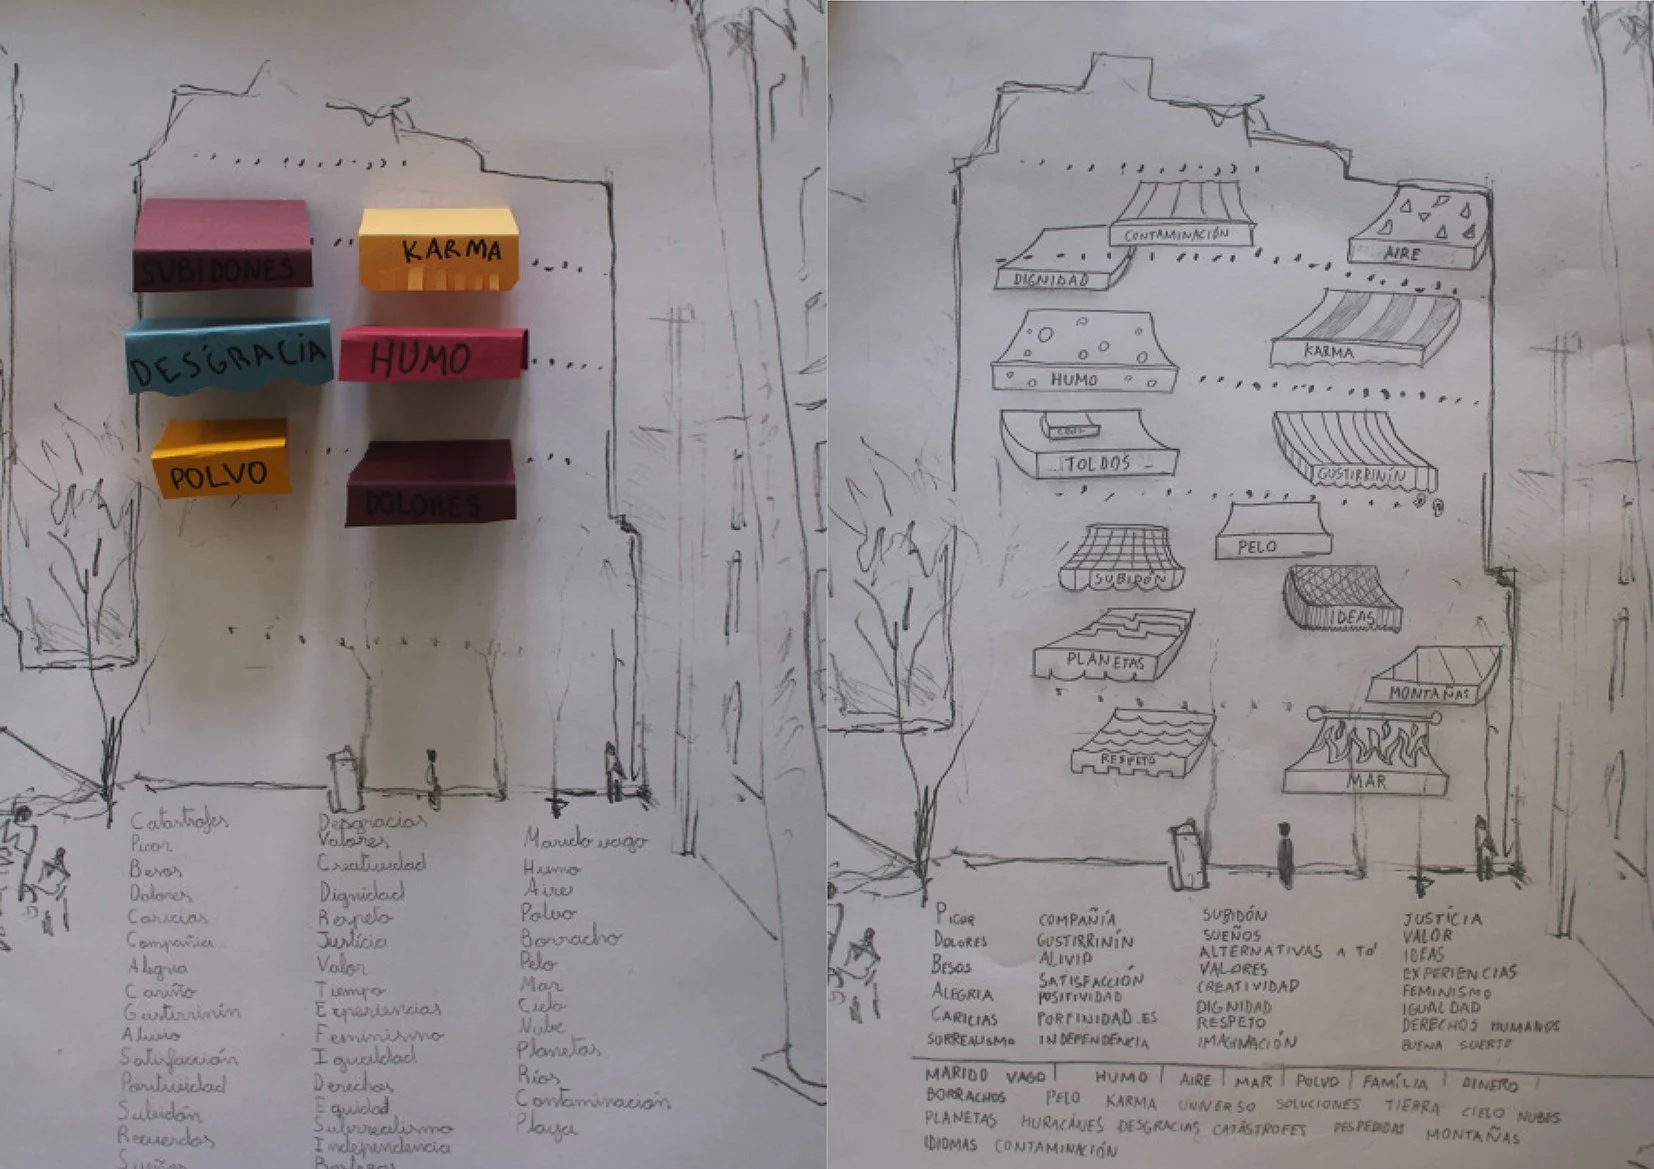 SUBIDONES
KARMA
DESGRACIA
HUMO
POLVO
DOLORES
Catastrofes
Picor
Besos
Dolores
Caricias
Compañia
Alegria
Cariño
Gustirrinín
Alivio
Satisfacción
Positividad
Subidón
Recuerdos
Sueños
Desgracias
Valores
Creatividad
Dignidad
Respeto
Justicia
Valor
Tiempo
Experiencias
Feminismo
Igualdad
Derechos
Equidad
Subrrealismo
Independencia
Marido vago
Humo
Aire
Polvo
Borracho
Pelo
Mar
Cielo
Nube
Planetas
Ríos
Contaminación
Playa
CONTAMINACIÓN
AIRE
DIGNIDAD
KARMA
HUMO
TOLDOS
GUSTIRRINÍN
PELO
SUBIDÓN
IDEAS
PLANETAS
MONTAÑAS
RESPETO
MAR
PICOR
DOLORES
BESOS
ALEGRIA
CARICIAS
SURREALISMO
COMPAÑÍA
GUSTIRRINÍN
ALIVIO
SATISFACCIÓN
POSITIVIDAD
PORFINIDAD.ES
INDEPENDENCIA
SUBIDÓN
SUEÑOS
ALTERNATIVAS A TO'
VALORES
CREATIVIDAD
DIGNIDAD
RESPETO
IMAGINACIÓN
JUSTÍCIA
VALOR
IDEAS
EXPERIENCIAS
FEMINISMO
IGUALDAD
DERECHOS HUMANOS
BUENA SUERTE
MARIDO VAGO | HUMO | AIRE | MAR | POLVO | FAMÍLIA | DINERO |
BORRACHOS PELO KARMA UNIVERSO SOLUCIONES TIERRA CIELO NUBES
PLANETAS HURACÁNES DESGRACIAS CATÁSTROFES DESPEDIDAS MONTAÑAS
IDIOMAS CONTAMINACIÓN